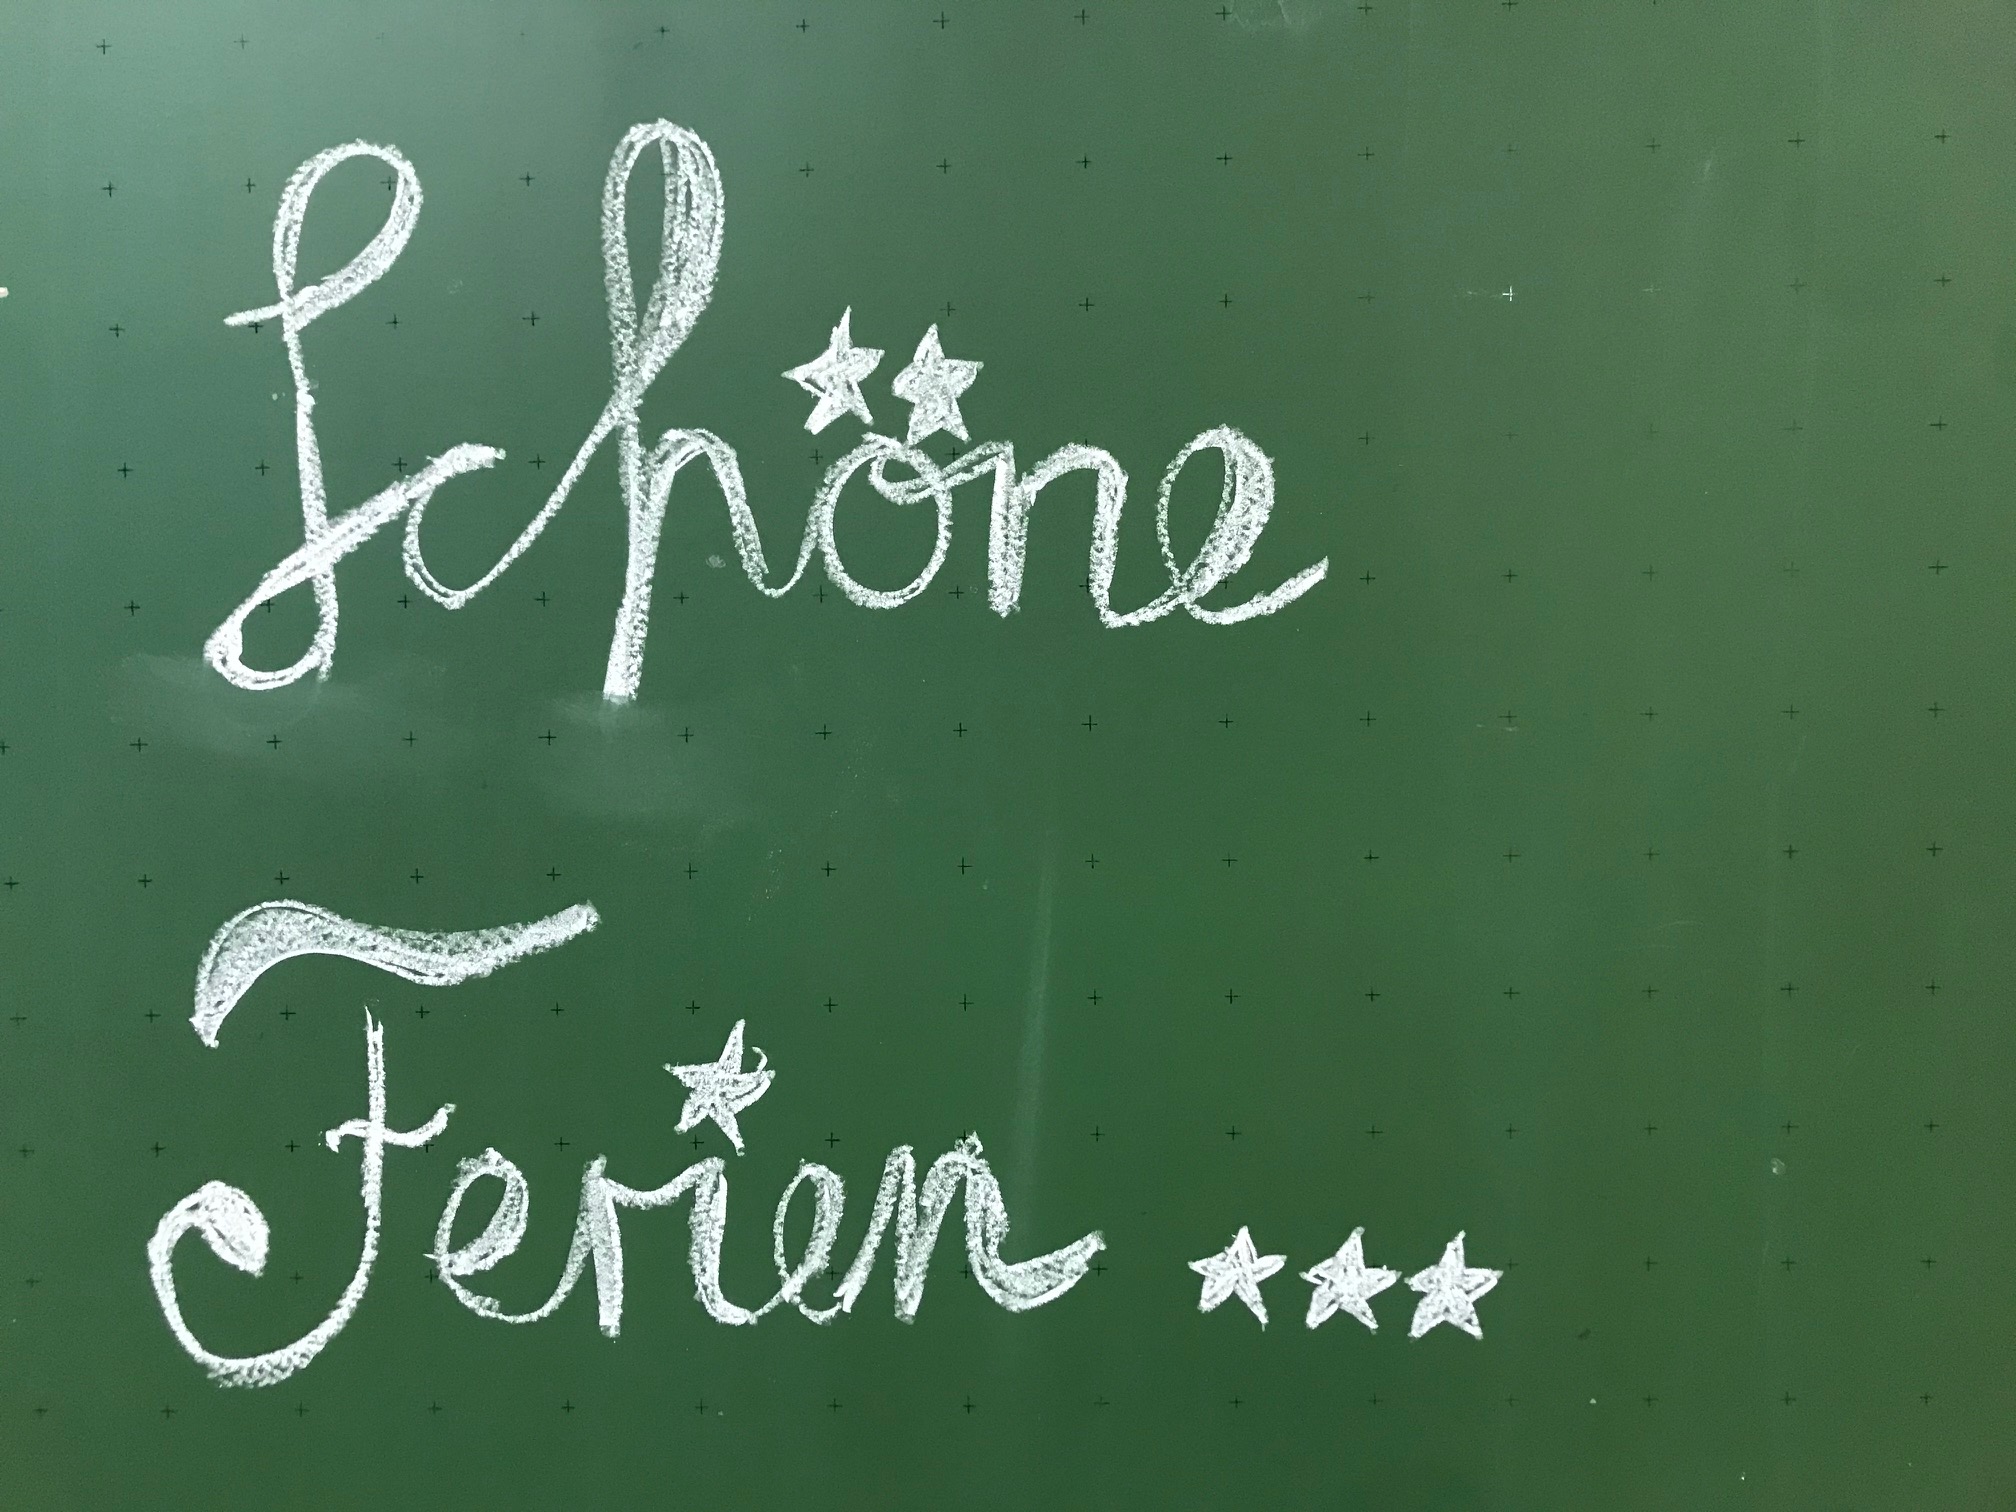 Schöne
Ferien...